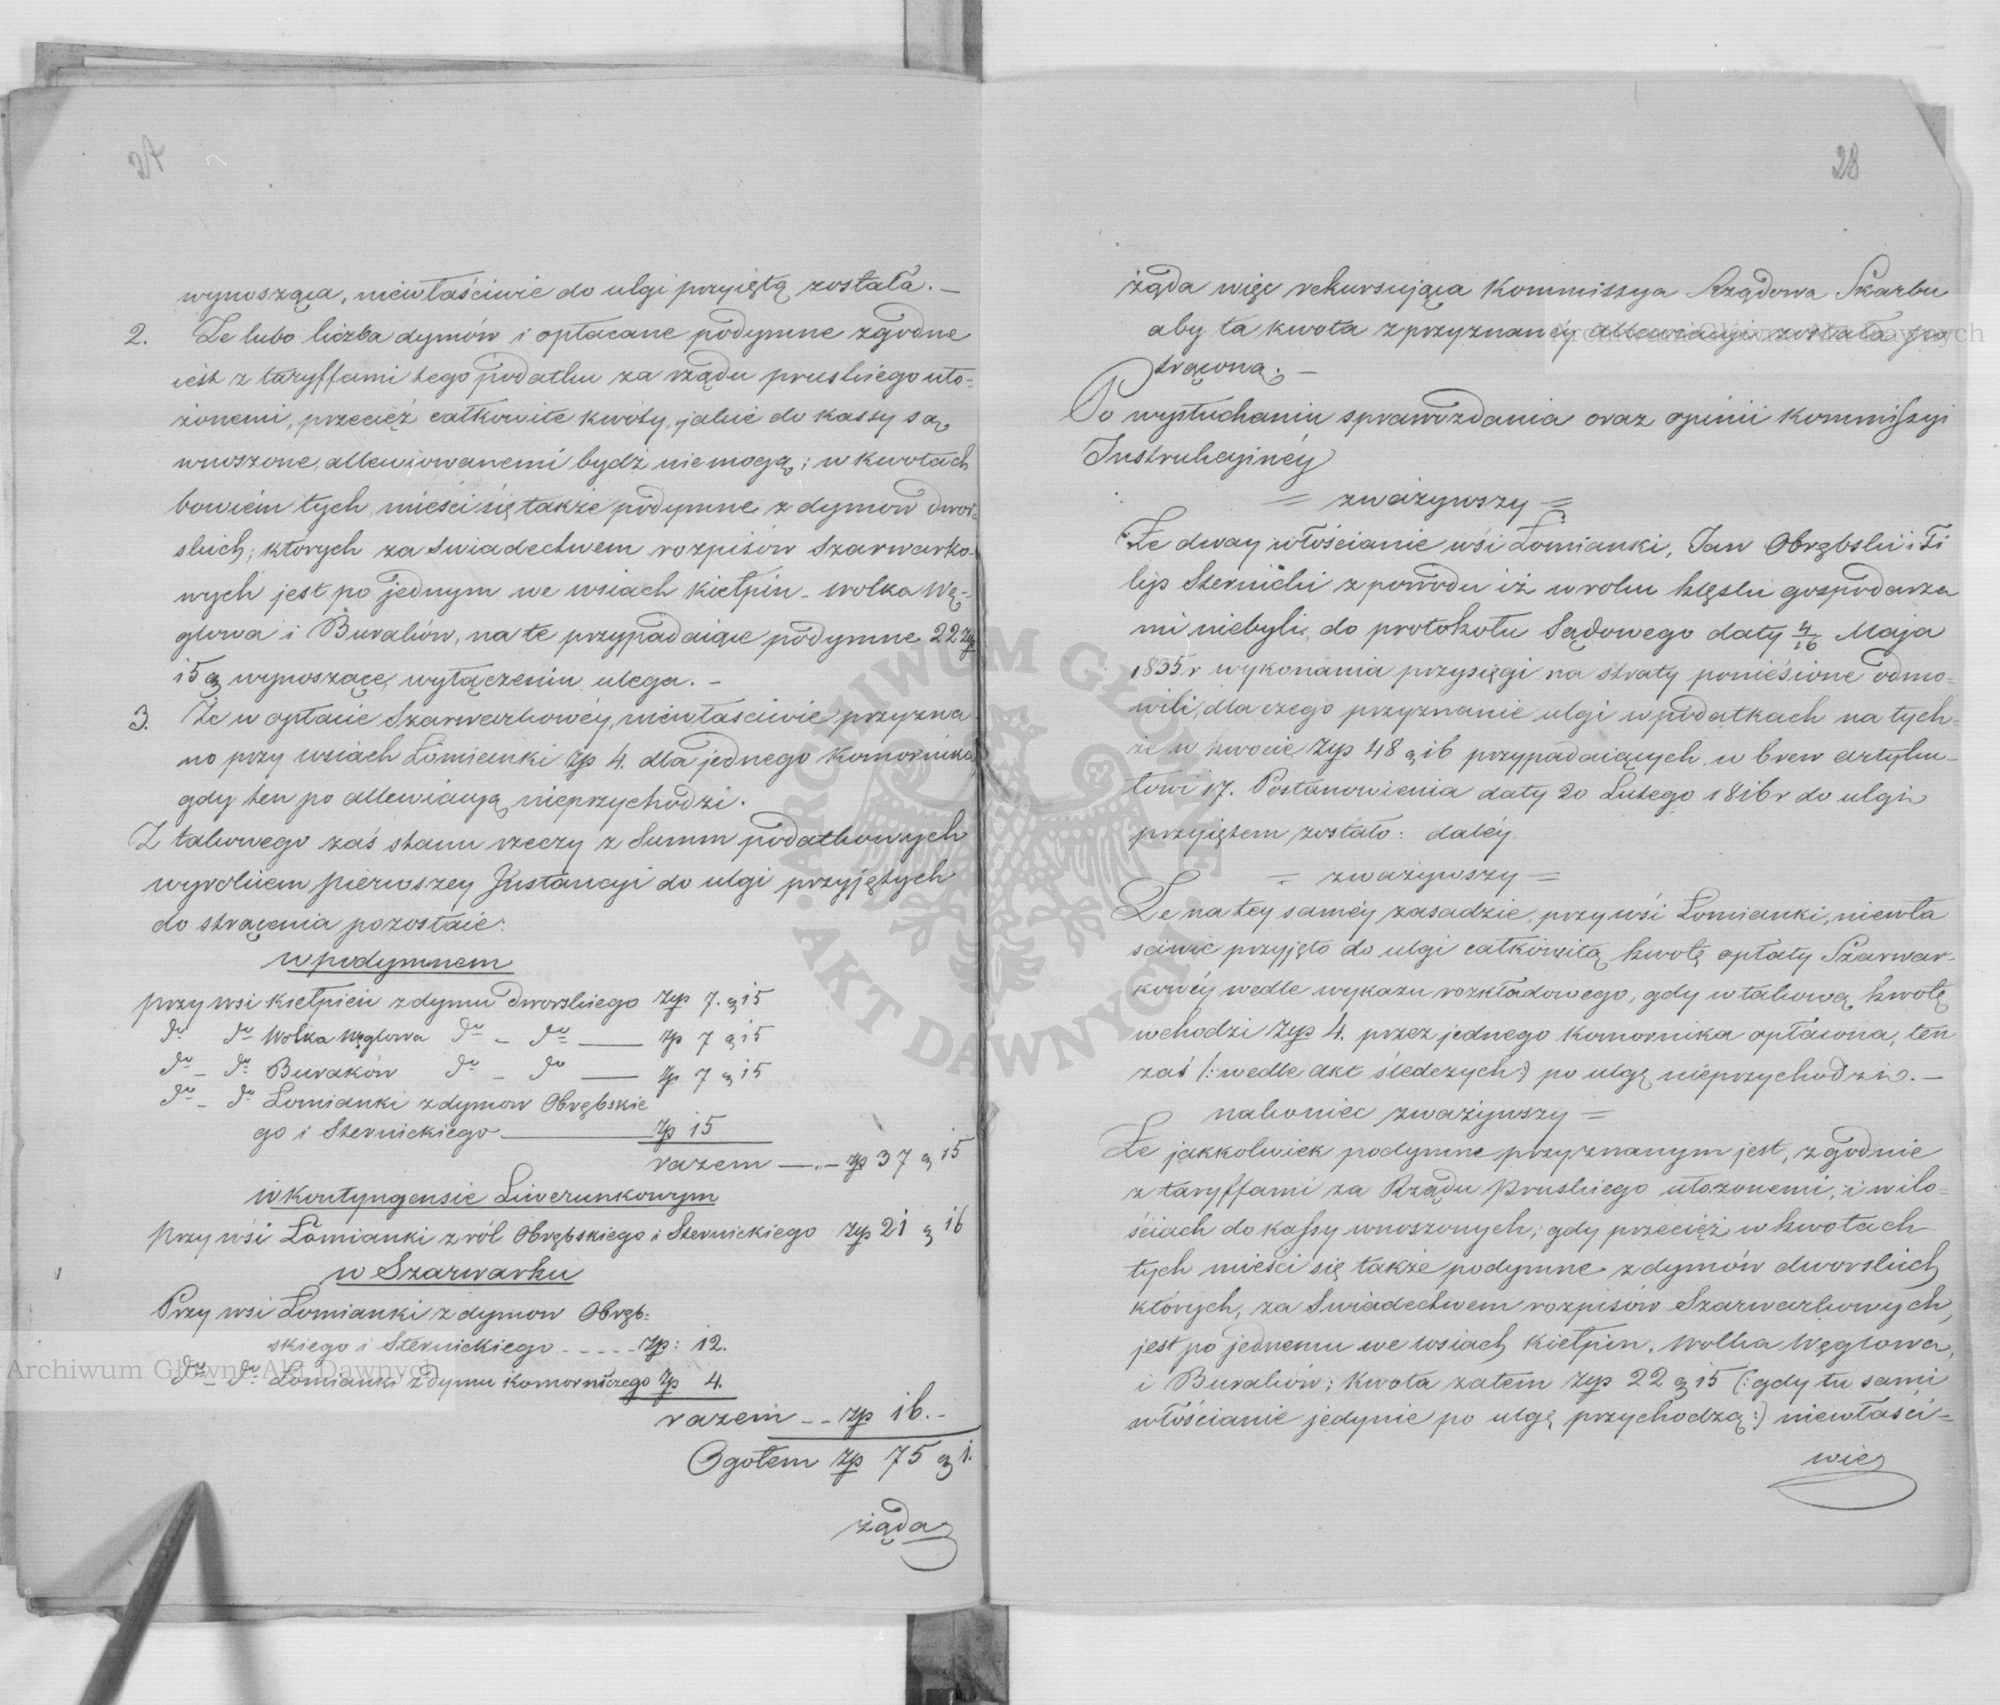 27
wynosząca, niewłaściwie do ulgi przyiętą została. —
2. Że lubo liczba dymów i opłacane podymne zgodne
iest z taryffami tego podatku za rządu pruskiego uło-
żonemi, przecięż całkowite kwoty, jakie do kassy są
wnoszone, allewiowanemi bydź niemogą; w kwotach
bowiem tych, mieści się także podymne z dymow dwor-
skich, których za swiadectwem rozpisów Szarwarko-
wych jest po jednym we wsiach Kiełpin - Wolka Wę-
glowa i Buraków, na te przypadaiące podymne 22 zp
15 g wynoszące, wyłączeniu ulega. —
3. Że w opłacie Szarwarkowéy, niewłasciwie przyzna
no przy wsiach Łomianki zp 4. dla jednego Komornika,
gdy ten po allewiacyą nieprzychodzi.
Z takowego zaś stanu rzeczy z Summ podatkowych
wyrokiem pierwszey Instancyi do ulgi przyjętych
do strącenia pozostaie:
w podymnem
przy wsi Kiełpien z dymu dworskiego zp 7. g 15
do do Wolka Węglowa do - do — zp 7 g 15
do - do Buraków do - do — zp 7 g 15
do - do Łomianki z dymow Obrębskie
go i Sternickiego — zp 15
razem — zp 37 g 15
w Kontyngensie Liwerunkowym
przy wsi Łomianki z ról Obrębskiego i Sternickiego zp 21 g 16
w Szarwarku
Przy wsi Łomianki z dymow Obręb-
skiego i Sternickiego - - - - - zp: 12.
do - do Łomianki z dymu komorniczego zp 4.
razem - - zp 16. -
Ogołem zp 75 g 1.
żąda
28
żąda więc rekursująca Kommissya Rządowa Skarbu
aby ta kwota z przyznanéy allewiacyi została po
trąconą. —
Po wysłuchaniu sprawozdania oraz opinii Kommissyi
Instrukcyinéy
= zważywszy =
Że dway włościanie wsi Łomianki, Jan Obrębski i Fi
lip Sternicki z powodu iż w roku klęski gospodarza
mi niebyli, do protokołu Sądowego daty 4/16 Maja
1835 r wykonania przysięgi na straty poniesione odmo-
wili, dla czego przyznanie ulgi w podatkach na tych-
że w kwocie Zp 48 g 16 przypadaiących, w brew artyku-
łowi 17. Postanowienia daty 20 Lutego 1816 r do ulgi
przyiętem zostało: daléy
= zważywszy =
Że na tey saméy zasadzie, przy wsi Łomianki, niewła
sciwie przyjęto do ulgi całkowitą kwotę opłaty Szarwar-
kowéy wedle wykazu rozkładowego, gdy w takową kwotę
wchodzi Zp 4. przez jednego Komornika opłacona, ten
zaś (: wedle akt śledczych :) po ulgę nieprzychodzi. —
nakoniec zważywszy =
Że jakkolwiek podymne przyznanym jest, zgodnie
z taryffami za Rządu Pruskiego ułożonemi, i w ilo-
ściach do kassy wnoszonych; gdy przecięż w kwotach
tych mieści się także podymne z dymów dworskich
których, za Swiadectwem rozpisów Szarwarkowych,
jest po jednemu we wsiach Kiełpin, Wolka Węglowa,
i Buraków; kwota zatem Zp 22 g 15 (: gdy tu sami
włościanie jedynie po ulgę przychodzą :) niewłaści-
wie
Archiwum Główne Akt Dawnych
ARCHIWUM GŁÓWNE
AKT DAWNYCH
Archiwum Główne Akt Dawnych